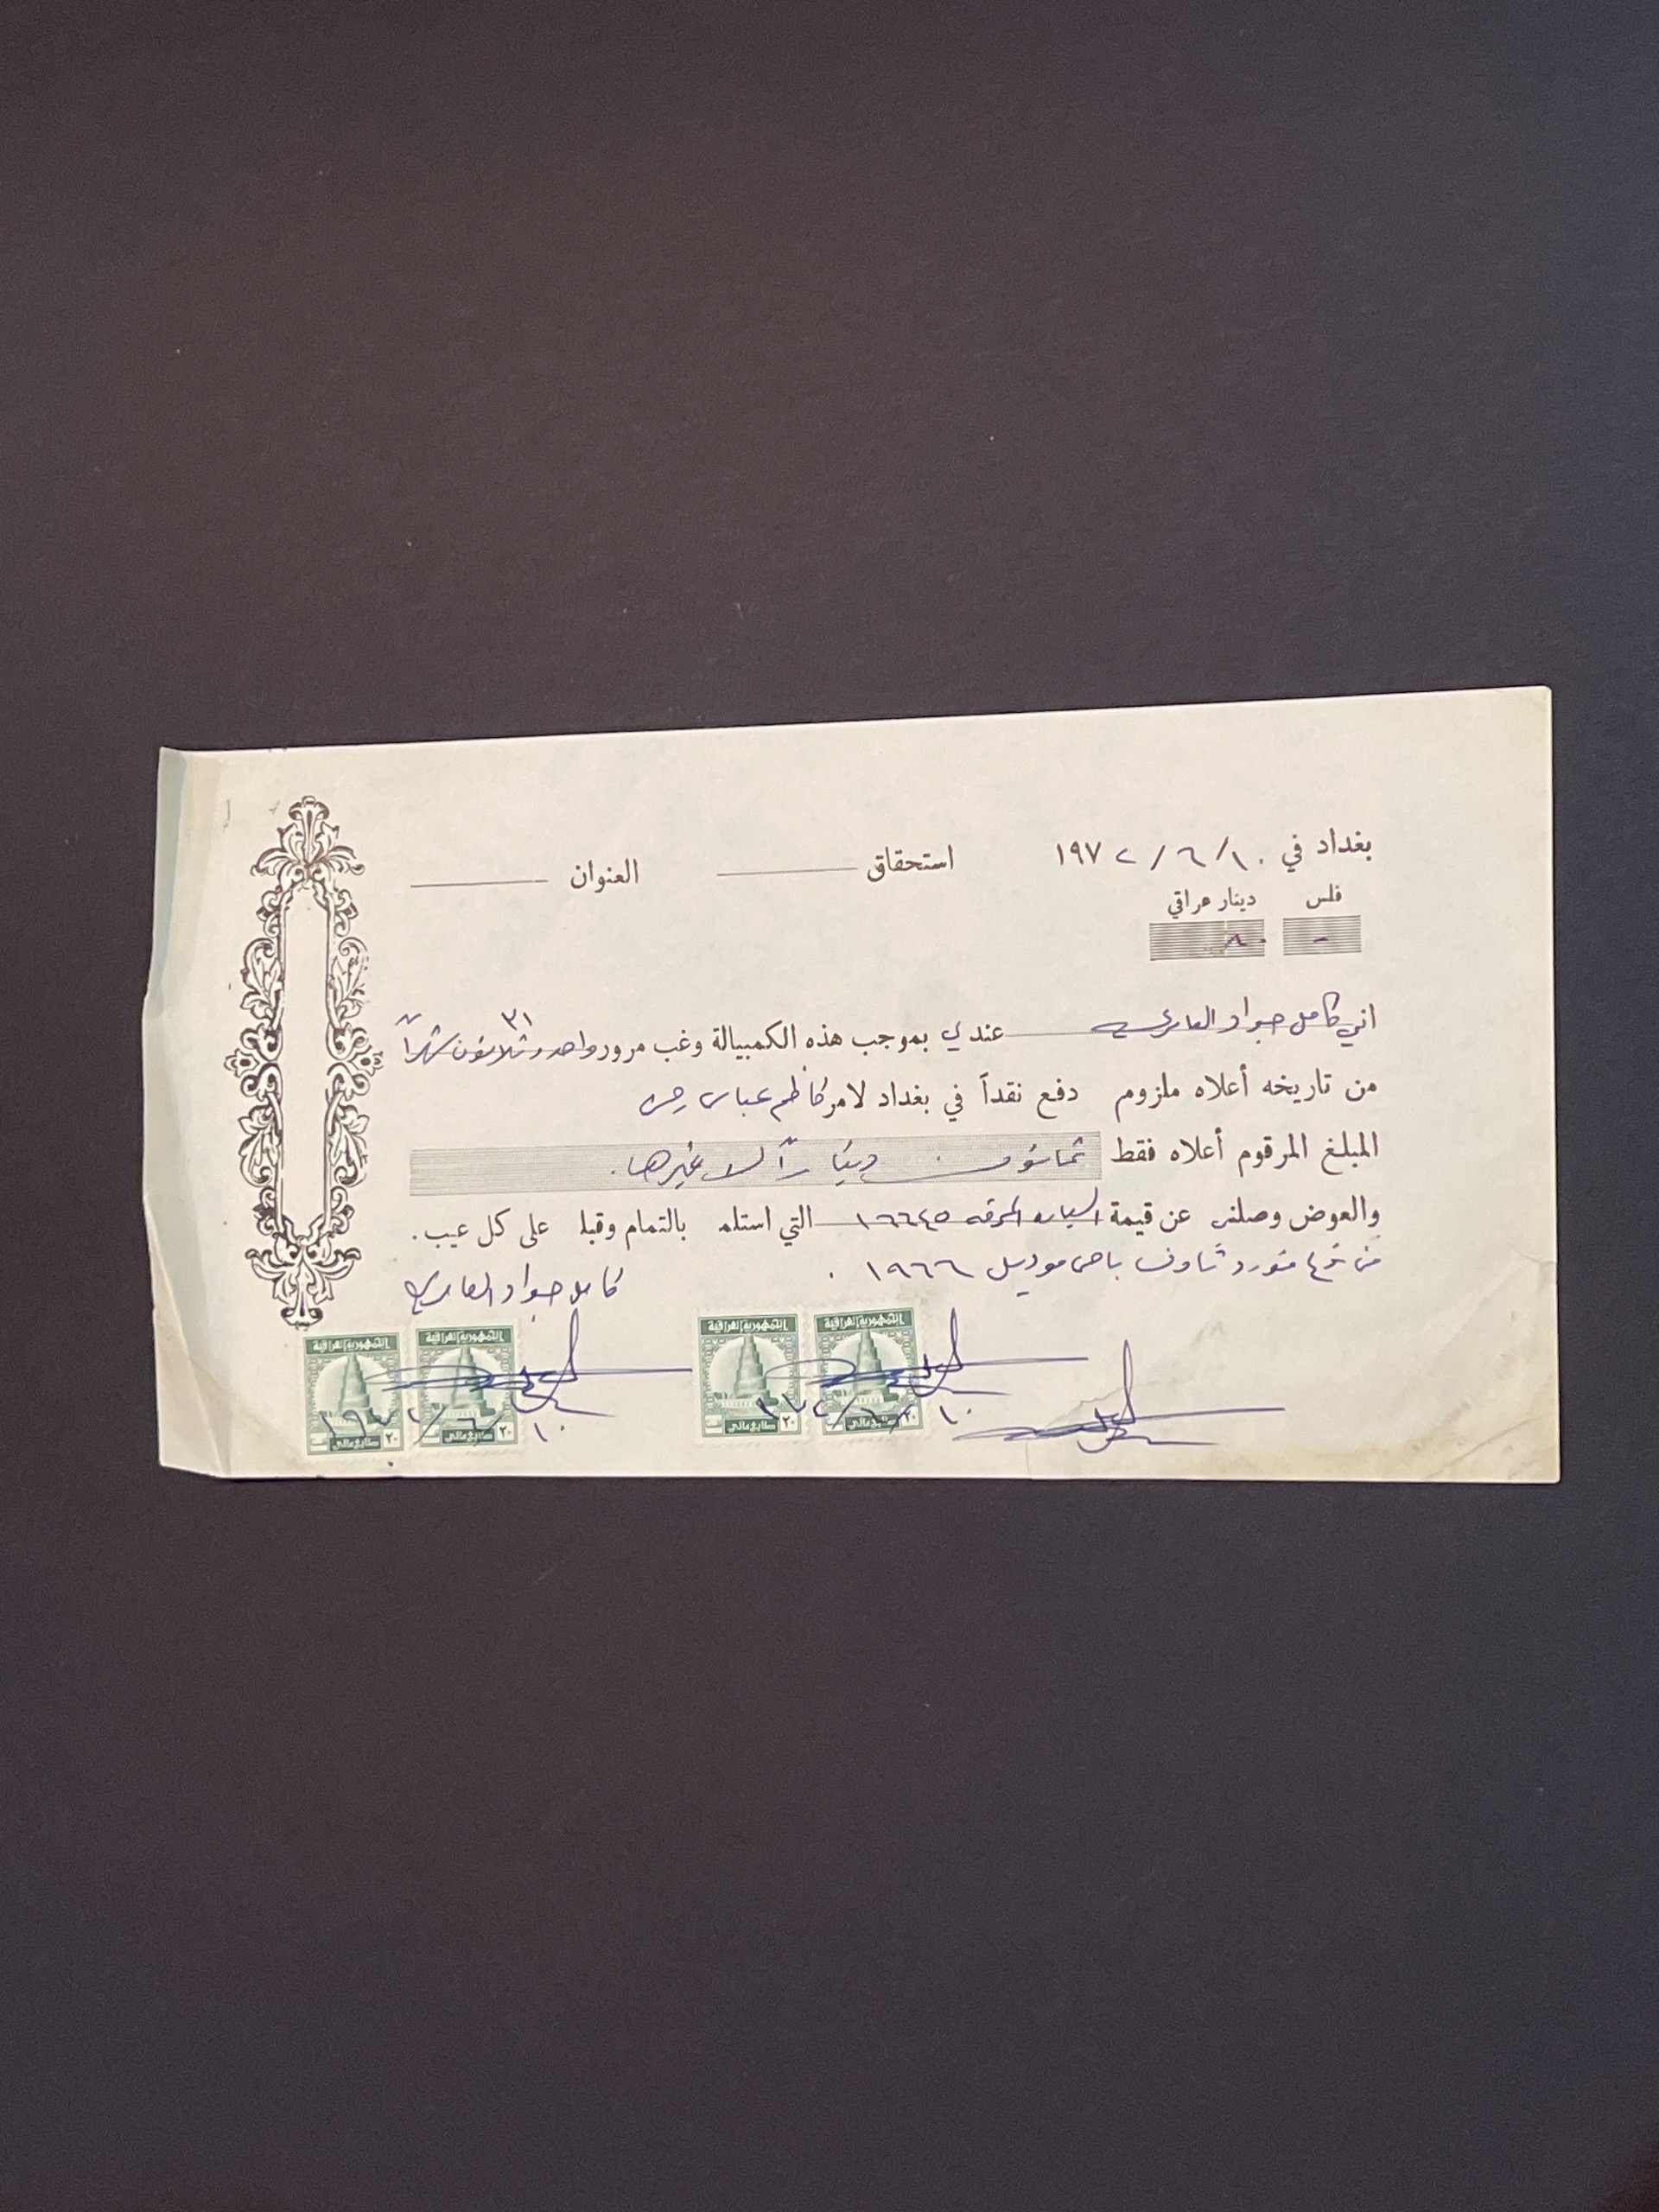 بغداد في ١٠/٦/١٩٧٢ استحقاق العنوان
فلس دينار عراقي
- ٨٠
اني كامل جواد العامري عندي بموجب هذه الكمبيالة وغب مرور واحد وثلاثون شهراً ٣١
من تاريخه أعلاه ملزوم دفع نقداً في بغداد لامر كاظم عباس
المبلغ المرقوم أعلاه فقط ثمانون ديناراً لا غيرها.
والعوض وصلني عن قيمة السيارة المرقمة ١٦٦٤٥ التي استلم بالتمام وقبلا على كل عيب.
من نوع فورد باص موديل ١٩٦٦.
كامل جواد العامري
الجمهورية العراقية الجمهورية العراقية الجمهورية العراقية الجمهورية العراقية
٢٠ طابع مالي ٢٠ طابع مالي ٢٠ طابع مالي ٢٠ طابع مالي
١٠/٦/٩٧٢ ١٠/٦/١٩٧٢